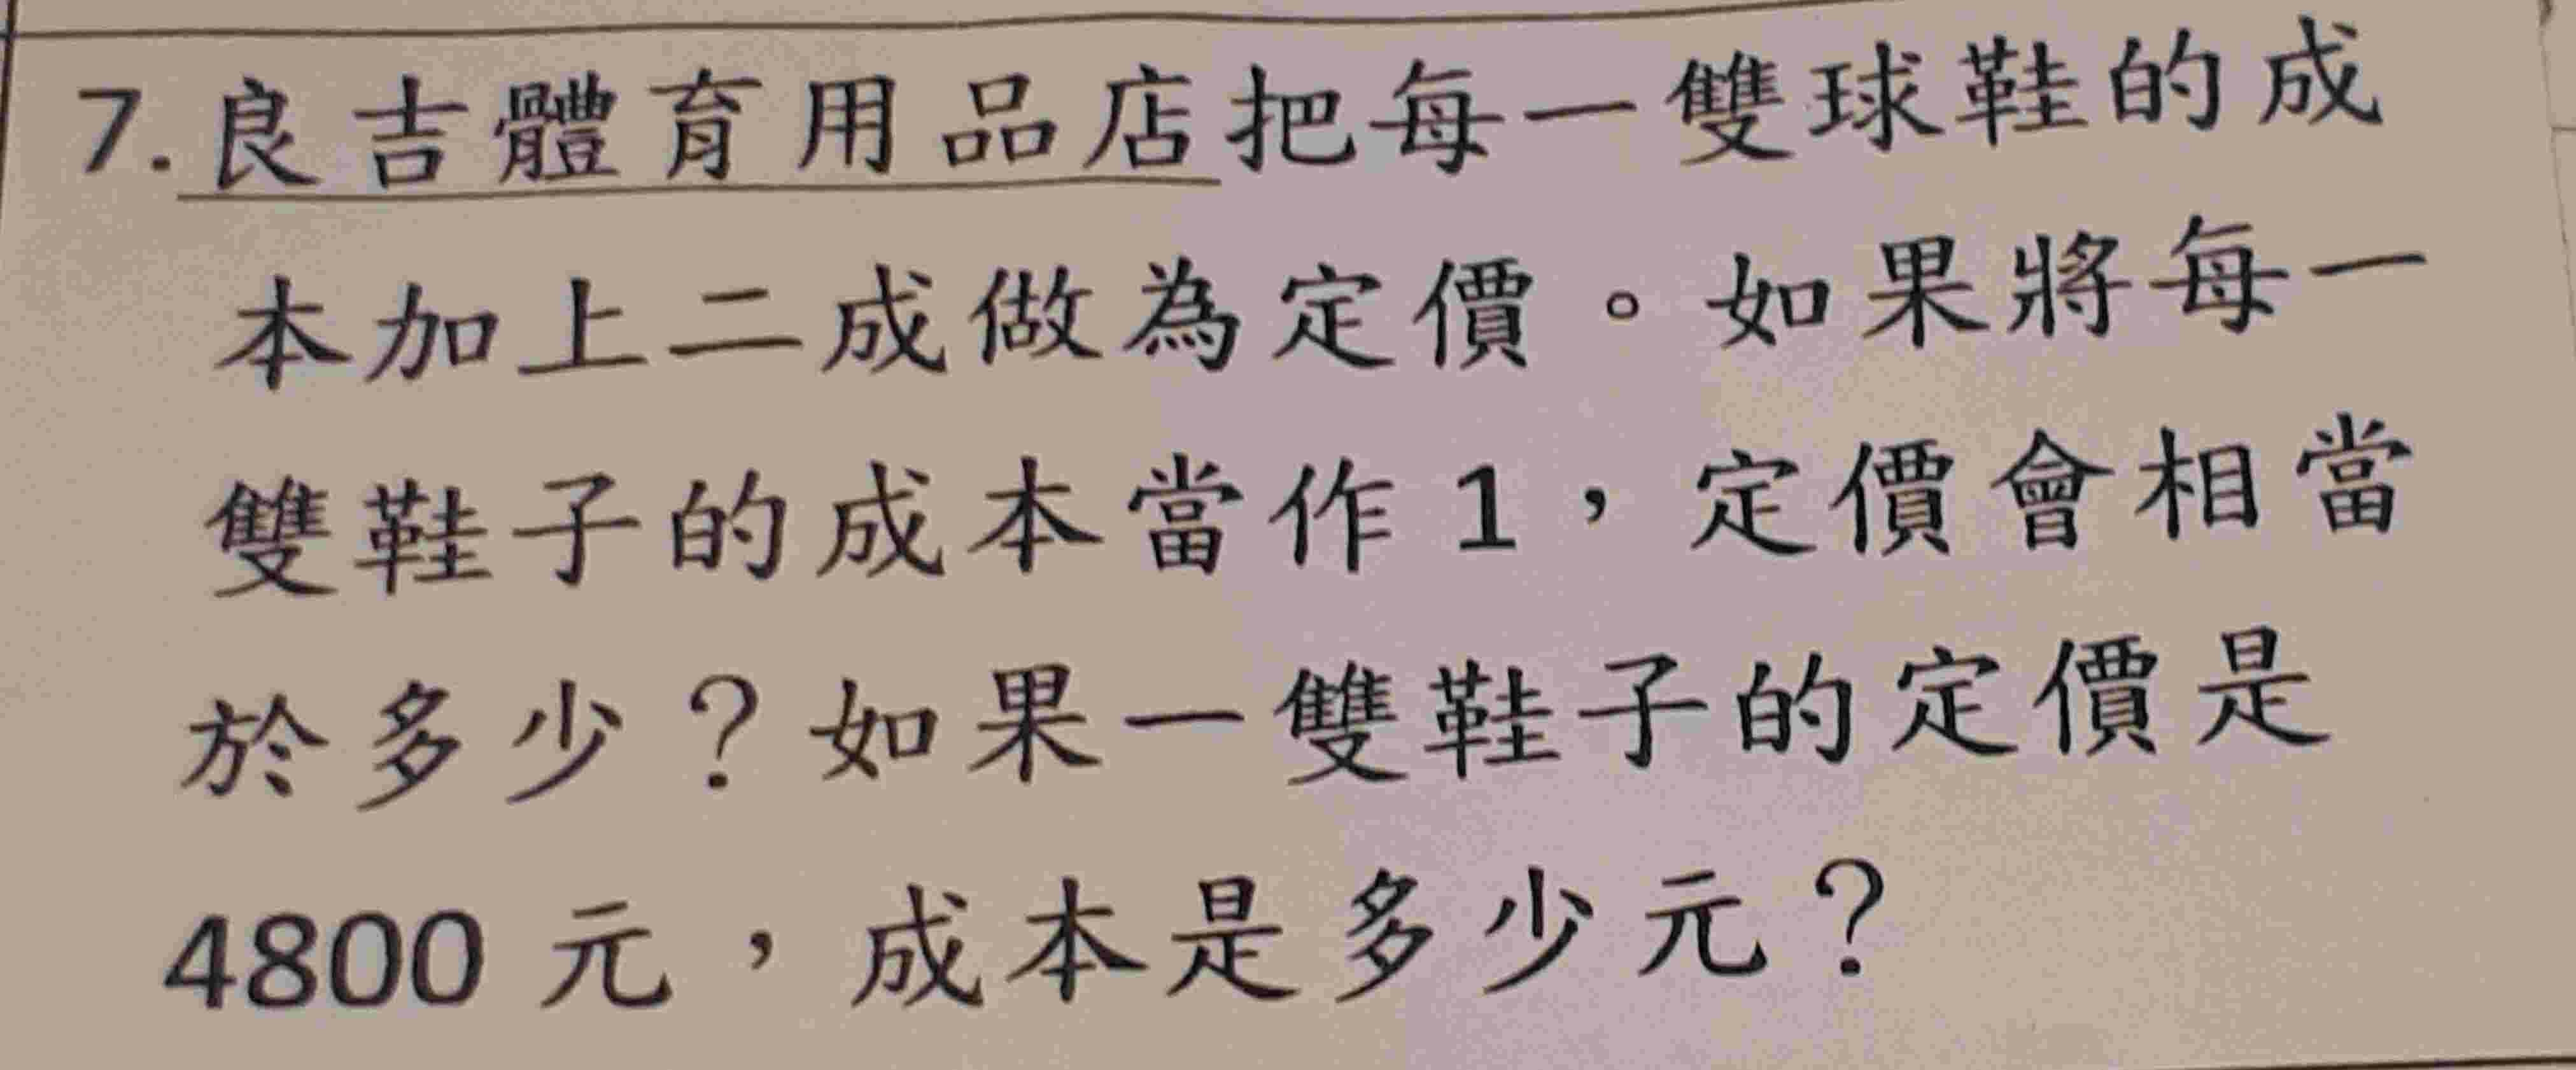 7. 良吉體育用品店把每一雙球鞋的成
本加上二成做為定價。如果將每一
雙鞋子的成本當作1，定價會相當
於多少？如果一雙鞋子的定價是
4800 元，成本是多少元？